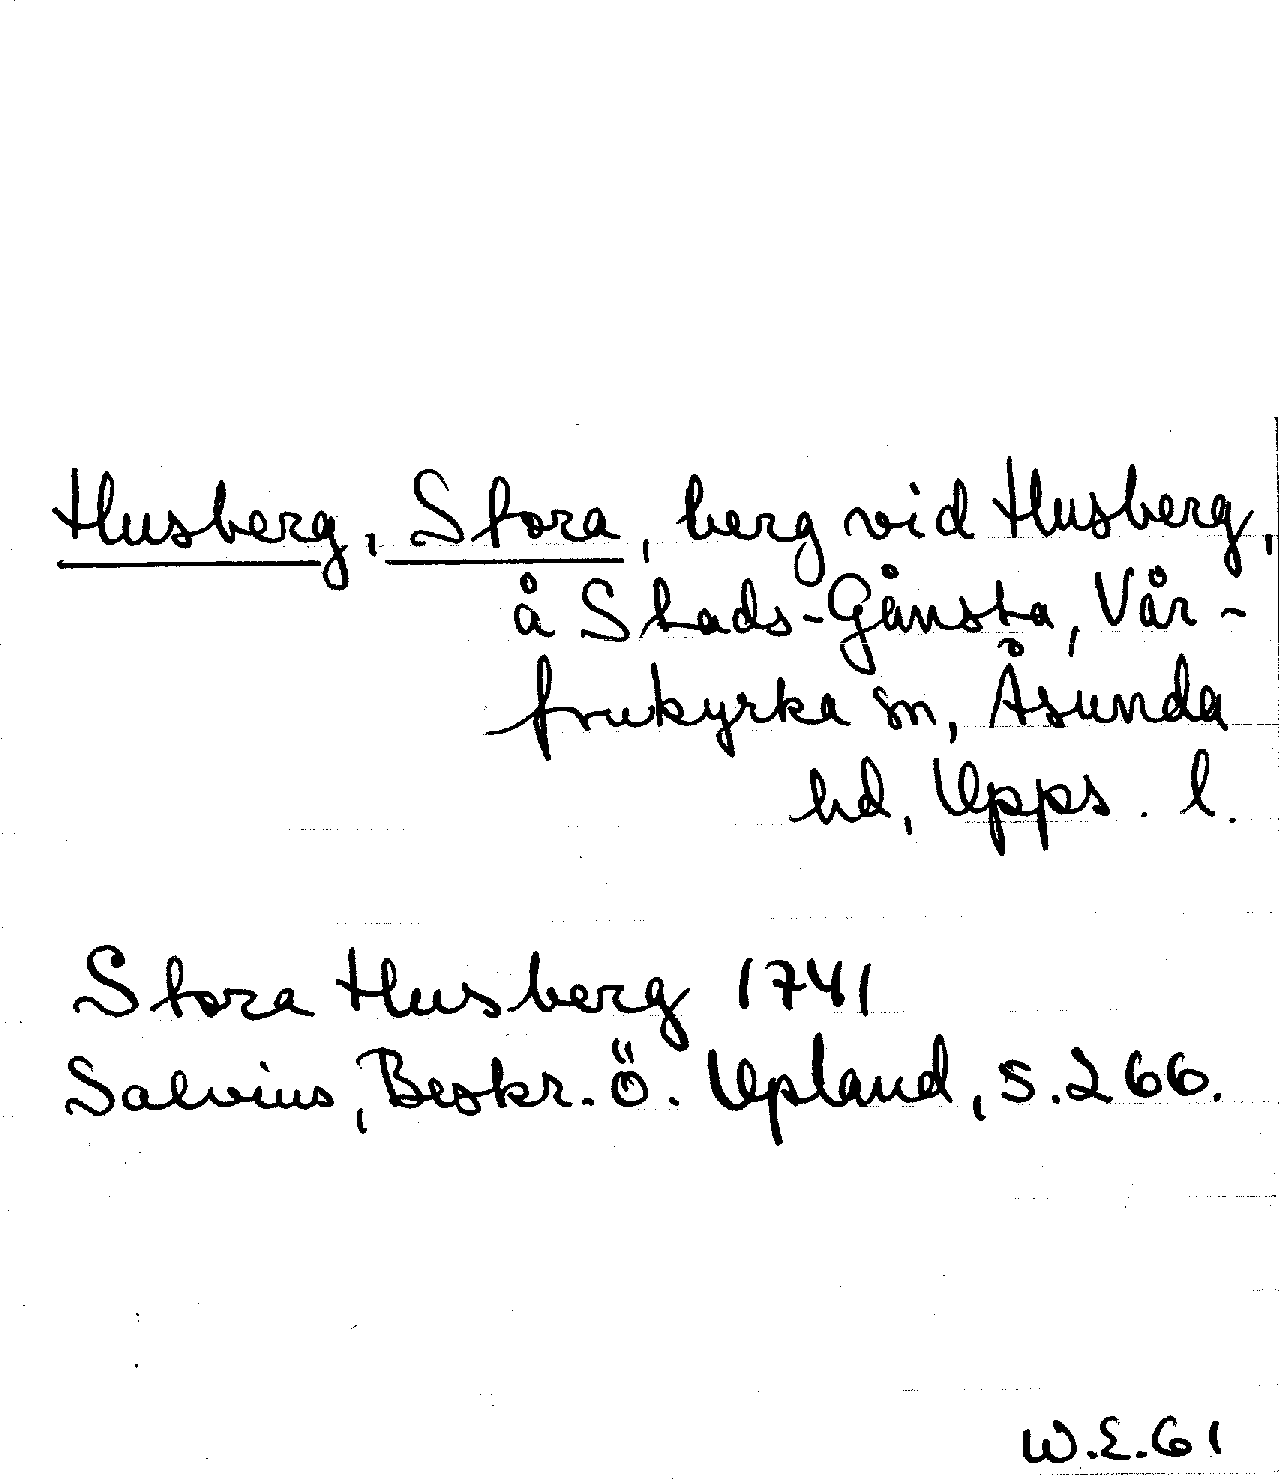 Husberg, Stora, berg vid Husberg,
å Stads-Gånsta, Vår-
frukyrka sn, Åsunda
hd, Upps. l.
Stora Husberg 1741
Salvius, Beskr. ö. Upland, s. 266.
W.E.61